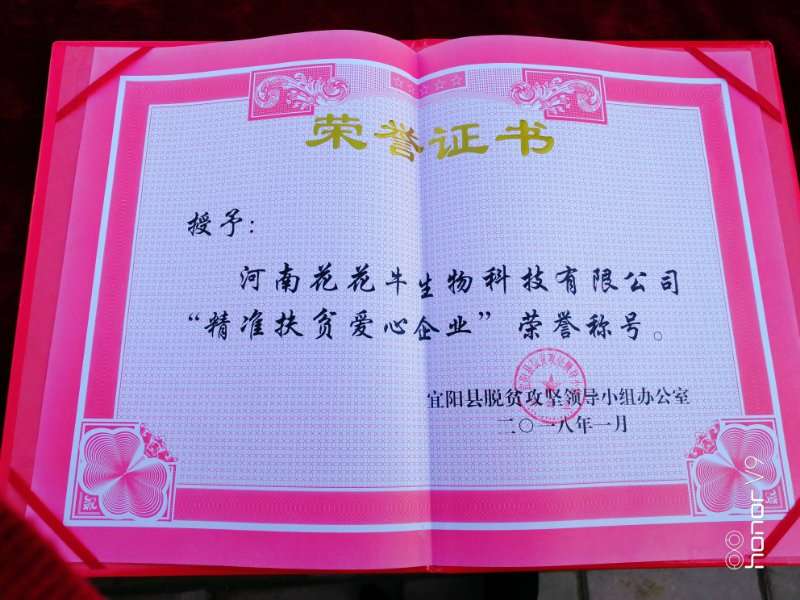 荣誉证书
授予：
河南花花牛生物科技有限公司
“精准扶贫爱心企业”荣誉称号。
宜阳县脱贫攻坚领导小组办公室
二〇一八年一月
honor V9